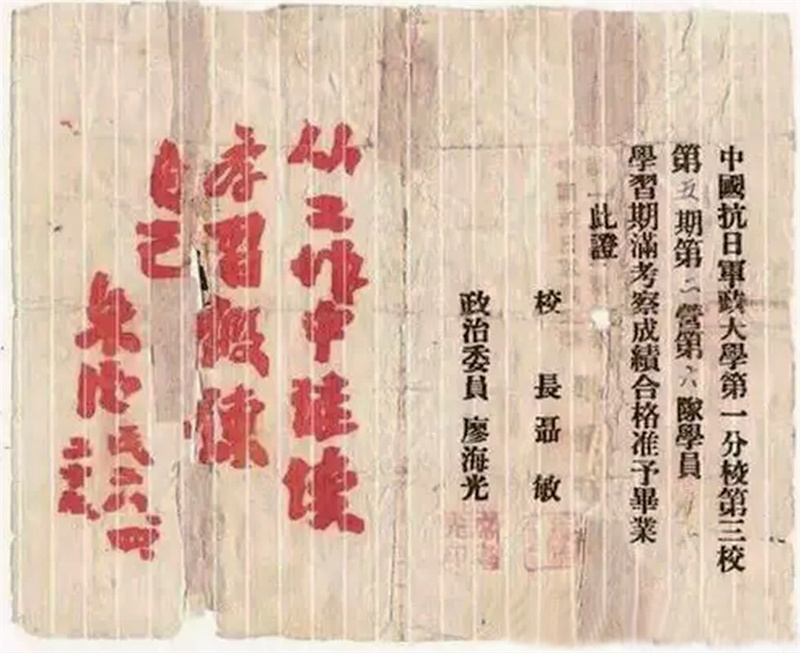 中國抗日軍政大學第一分校第三校
第五期第二營第六隊學員
學習期滿考察成績合格准予畢業
此證
校長聶敏
政治委員廖海光
從工作中繼續
學習鍛鍊
自己